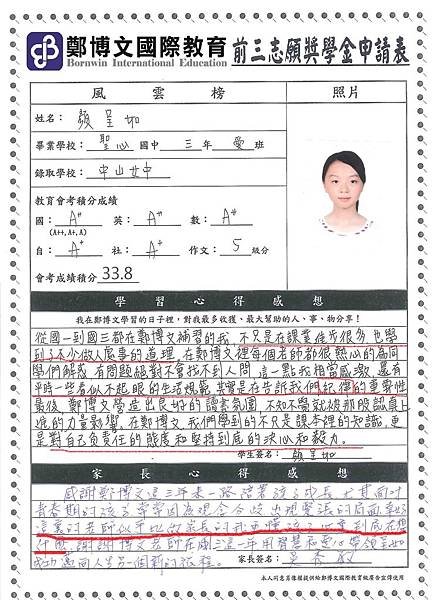 鄭博文國際教育 前三志願獎學金申請表
Bornwin International Education
風雲榜 照片
姓名：顏呈如
畢業學校：聖心 國中 三 年 愛 班
錄取學校：中山女中
教育會考積分成績
國： 英： 數：
(A++, A+, A)
自：A+ 社：A+ 作文：5 級分
會考成績積分 33.8
學習心得感想
我在鄭博文學習的日子裡，對我最多收獲、最大幫助的人、事、物分享！
從國一到國三都在鄭博文補習的我，不只是在課業進步很多，也學
到了不少做人處事的道理，在鄭博文裡每個老師都很熱心的為同
學們解惑，有問題絕對不會找不到人問，這一點我相當感激，還有
平時一些看似不起眼的生活規範，其實是在告訴我們紀律的重要性
最後，鄭博文營造出良好的讀書氛圍，不知不覺就被那股認真上
進的力量影響，在鄭博文，我們學到的不只是課本裡的知識，更
是對自己負責任的態度和堅持到底的決心和毅力。
學生簽名：顏呈如
家長心得感想
感謝鄭博文這三年來一路陪著孩子成長，尤其面對
青春期的孩子常常因為
這裡的老師似乎比做家長的我更懂孩子心裏到底在想
什麼，謝謝鄭博文老師在國三這一年用智慧和愛心帶領呈如
邁向人生另一個新的旅程。 家長簽名：
本人同意肖像權提供給鄭博文國際教育做廣告宣傳使用